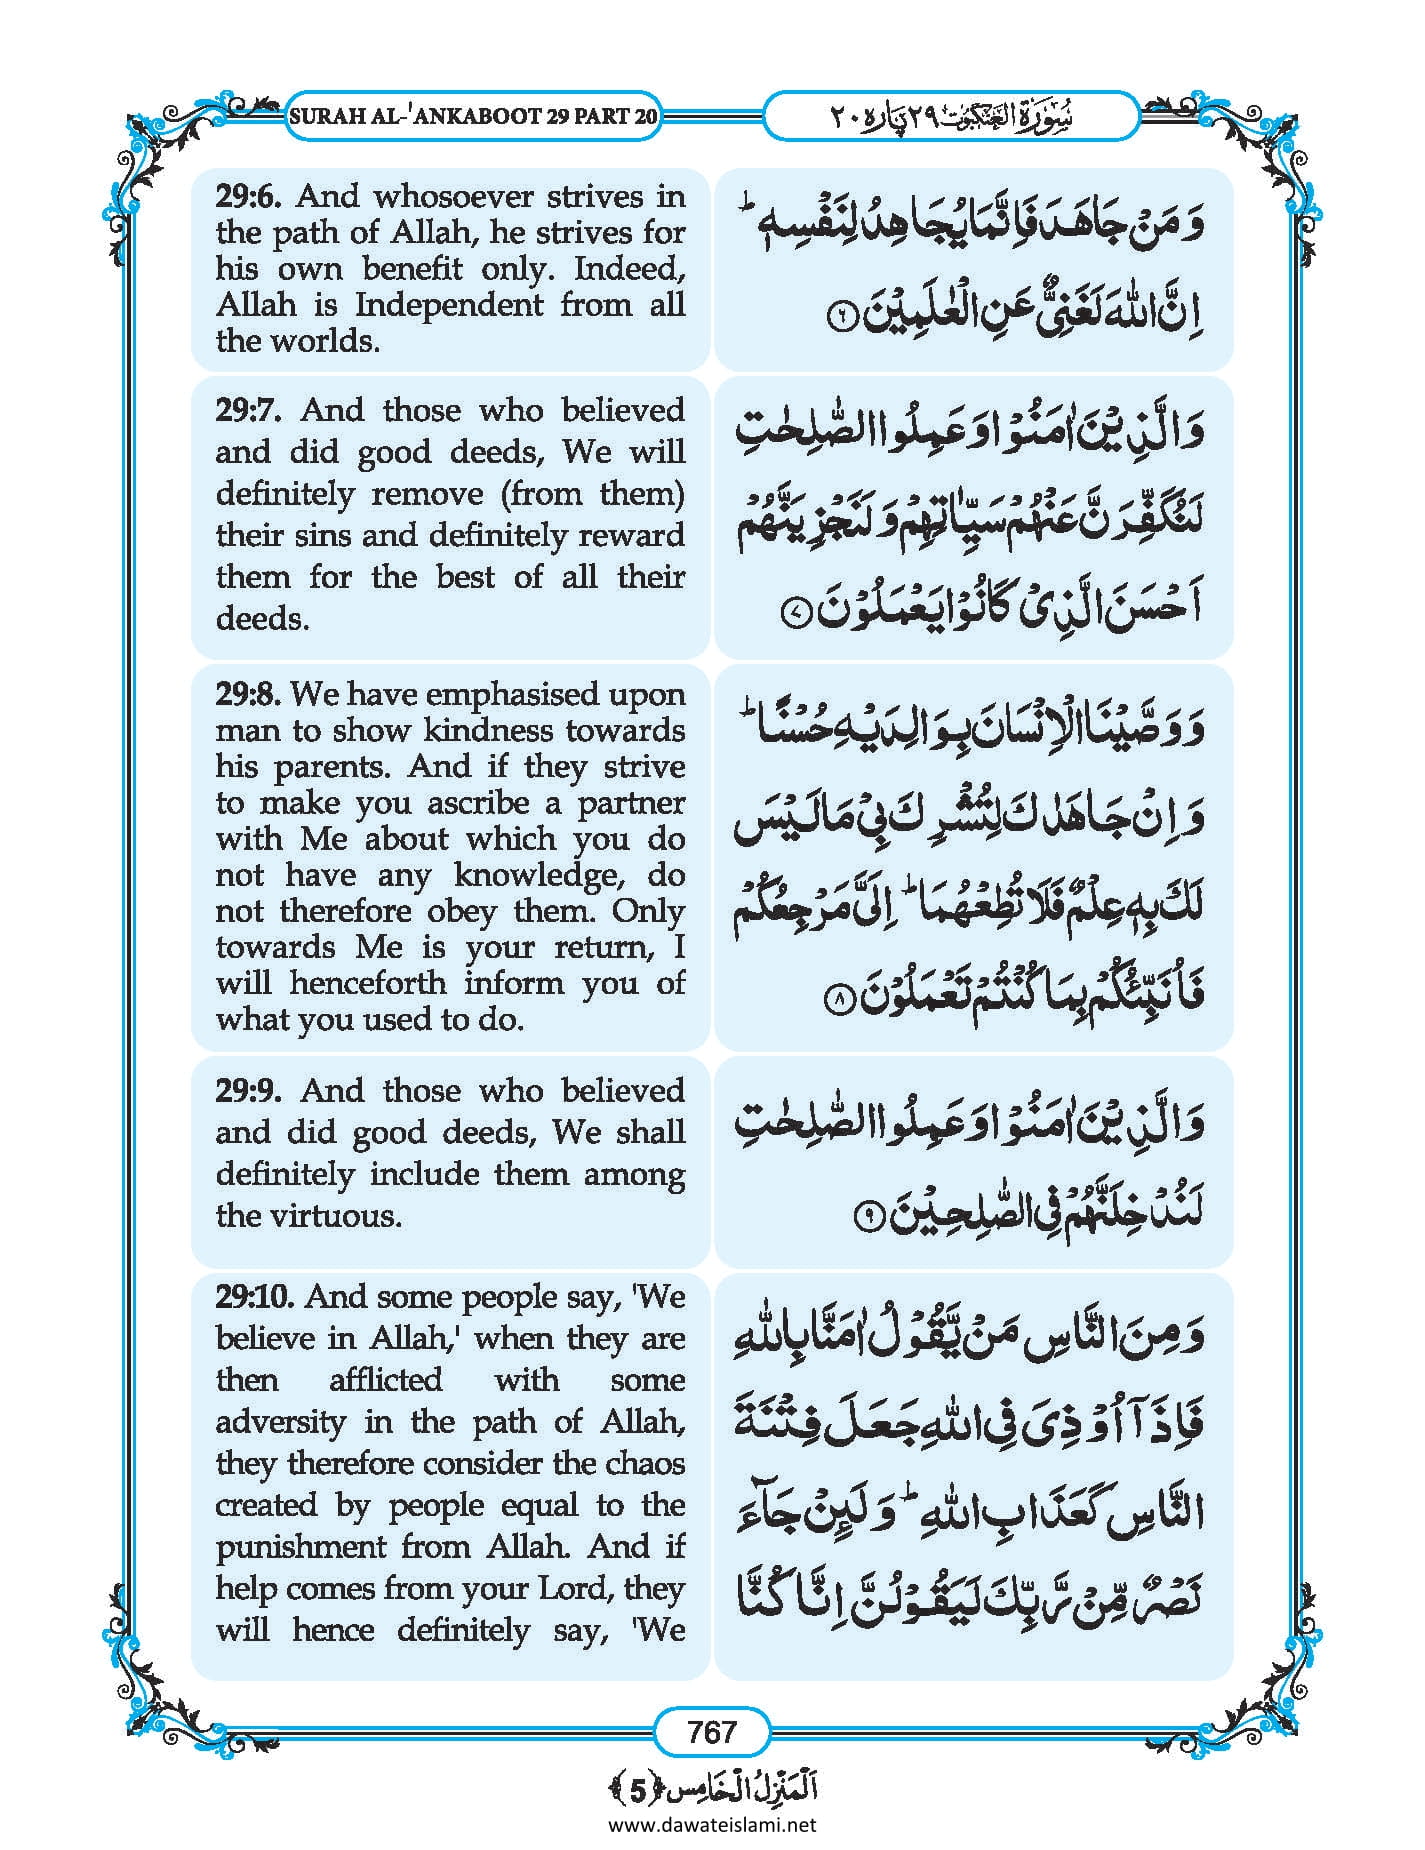 SURAH AL-'ANKABOOT 29 PART 20
سُوْرَةُ الْعَنْكَبُوْت ٢٩ پاره ٢٠
29:6. And whosoever strives in
the path of Allah, he strives for
his own benefit only. Indeed,
Allah is Independent from all
the worlds.
وَ مَنْ جَاهَدَ فَاِنَّمَا یُجَاهِدُ لِنَفْسِهٖؕ
اِنَّ اللّٰهَ لَغَنِیٌّ عَنِ الْعٰلَمِیْنَ ﴿۶﴾
29:7. And those who believed
and did good deeds, We will
definitely remove (from them)
their sins and definitely reward
them for the best of all their
deeds.
وَ الَّذِیْنَ اٰمَنُوْا وَ عَمِلُوا الصّٰلِحٰتِ
لَنُكَفِّرَنَّ عَنْهُمْ سَیِّاٰتِهِمْ وَ لَنَجْزِیَنَّهُمْ
اَحْسَنَ الَّذِیْ كَانُوْا یَعْمَلُوْنَ ﴿۷﴾
29:8. We have emphasised upon
man to show kindness towards
his parents. And if they strive
to make you ascribe a partner
with Me about which you do
not have any knowledge, do
not therefore obey them. Only
towards Me is your return, I
will henceforth inform you of
what you used to do.
وَ وَصَّیْنَا الْاِنْسَانَ بِوَالِدَیْهِ حُسْنًاؕ
وَ اِنْ جَاهَدٰكَ لِتُشْرِكَ بِیْ مَا لَیْسَ
لَكَ بِهٖ عِلْمٌ فَلَا تُطِعْهُمَاؕ اِلَیَّ مَرْجِعُكُمْ
فَاُنَبِّئُكُمْ بِمَا كُنْتُمْ تَعْمَلُوْنَ ﴿۸﴾
29:9. And those who believed
and did good deeds, We shall
definitely include them among
the virtuous.
وَ الَّذِیْنَ اٰمَنُوْا وَ عَمِلُوا الصّٰلِحٰتِ
لَنُدْخِلَنَّهُمْ فِی الصّٰلِحِیْنَ ﴿۹﴾
29:10. And some people say, 'We
believe in Allah,' when they are
then afflicted with some
adversity in the path of Allah,
they therefore consider the chaos
created by people equal to the
punishment from Allah. And if
help comes from your Lord, they
will hence definitely say, 'We
وَ مِنَ النَّاسِ مَنْ یَّقُوْلُ اٰمَنَّا بِاللّٰهِ
فَاِذَاۤ اُوْذِیَ فِی اللّٰهِ جَعَلَ فِتْنَةَ
النَّاسِ كَعَذَابِ اللّٰهِؕ وَ لَىِٕنْ جَآءَ
نَصْرٌ مِّنْ رَّبِّكَ لَیَقُوْلُنَّ اِنَّا كُنَّا
767
اَلْمَنْزِلُ الْخَامِس ﴿5﴾
www.dawateislami.net